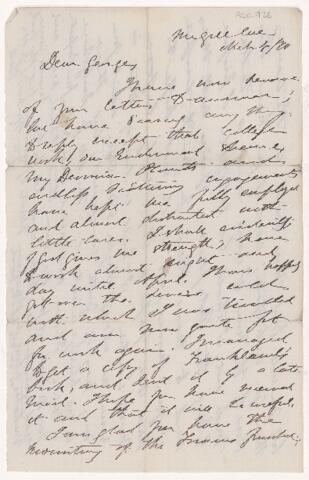 McGill Coll.
Mch 4/80
Dear George,
I have now
of your letters to answer,
but have scarcely any thing
to reply except that college
work, our Endowment scheme
my Devonian Plants and
endless lecturing engagements
have kept me fully employed
and almost distracted with
little cares. I shall evidently
if God gives me strength, have
to work almost night and
day until April. I have happily
got over the severe cold
with which I was troubled
and am now quite fit
for work again. I managed
to get a copy of Frankland's
book, and sent it by a late
mail. I hope you have received
it and that it will be useful.
I am glad you have the
rewriting of the